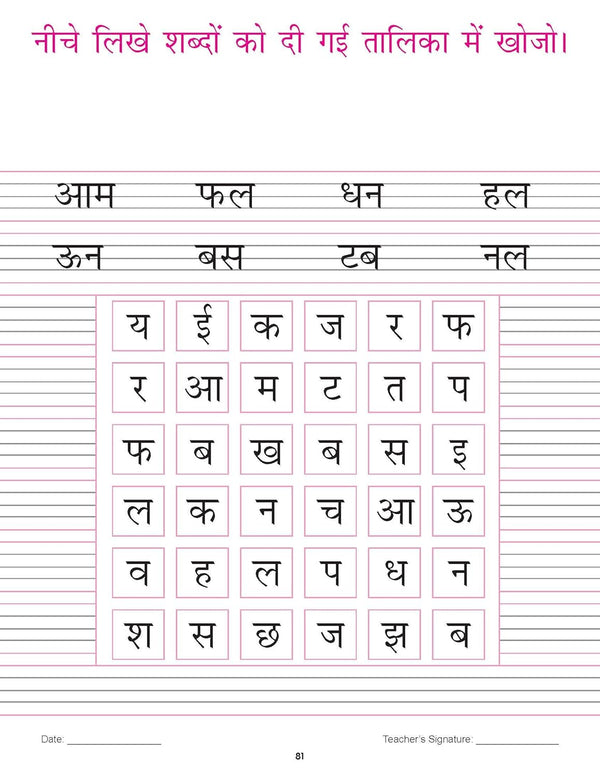 नीचे लिखे शब्दों को दी गई तालिका में खोजो।
आम फल धन हल
ऊन बस टब नल
य ई क ज र फ
र आ म ट त प
फ ब ख ब स इ
ल क न च आ ऊ
व ह ल प ध न
श स छ ज झ ब
Date: ____________________ Teacher's Signature: ________________
81